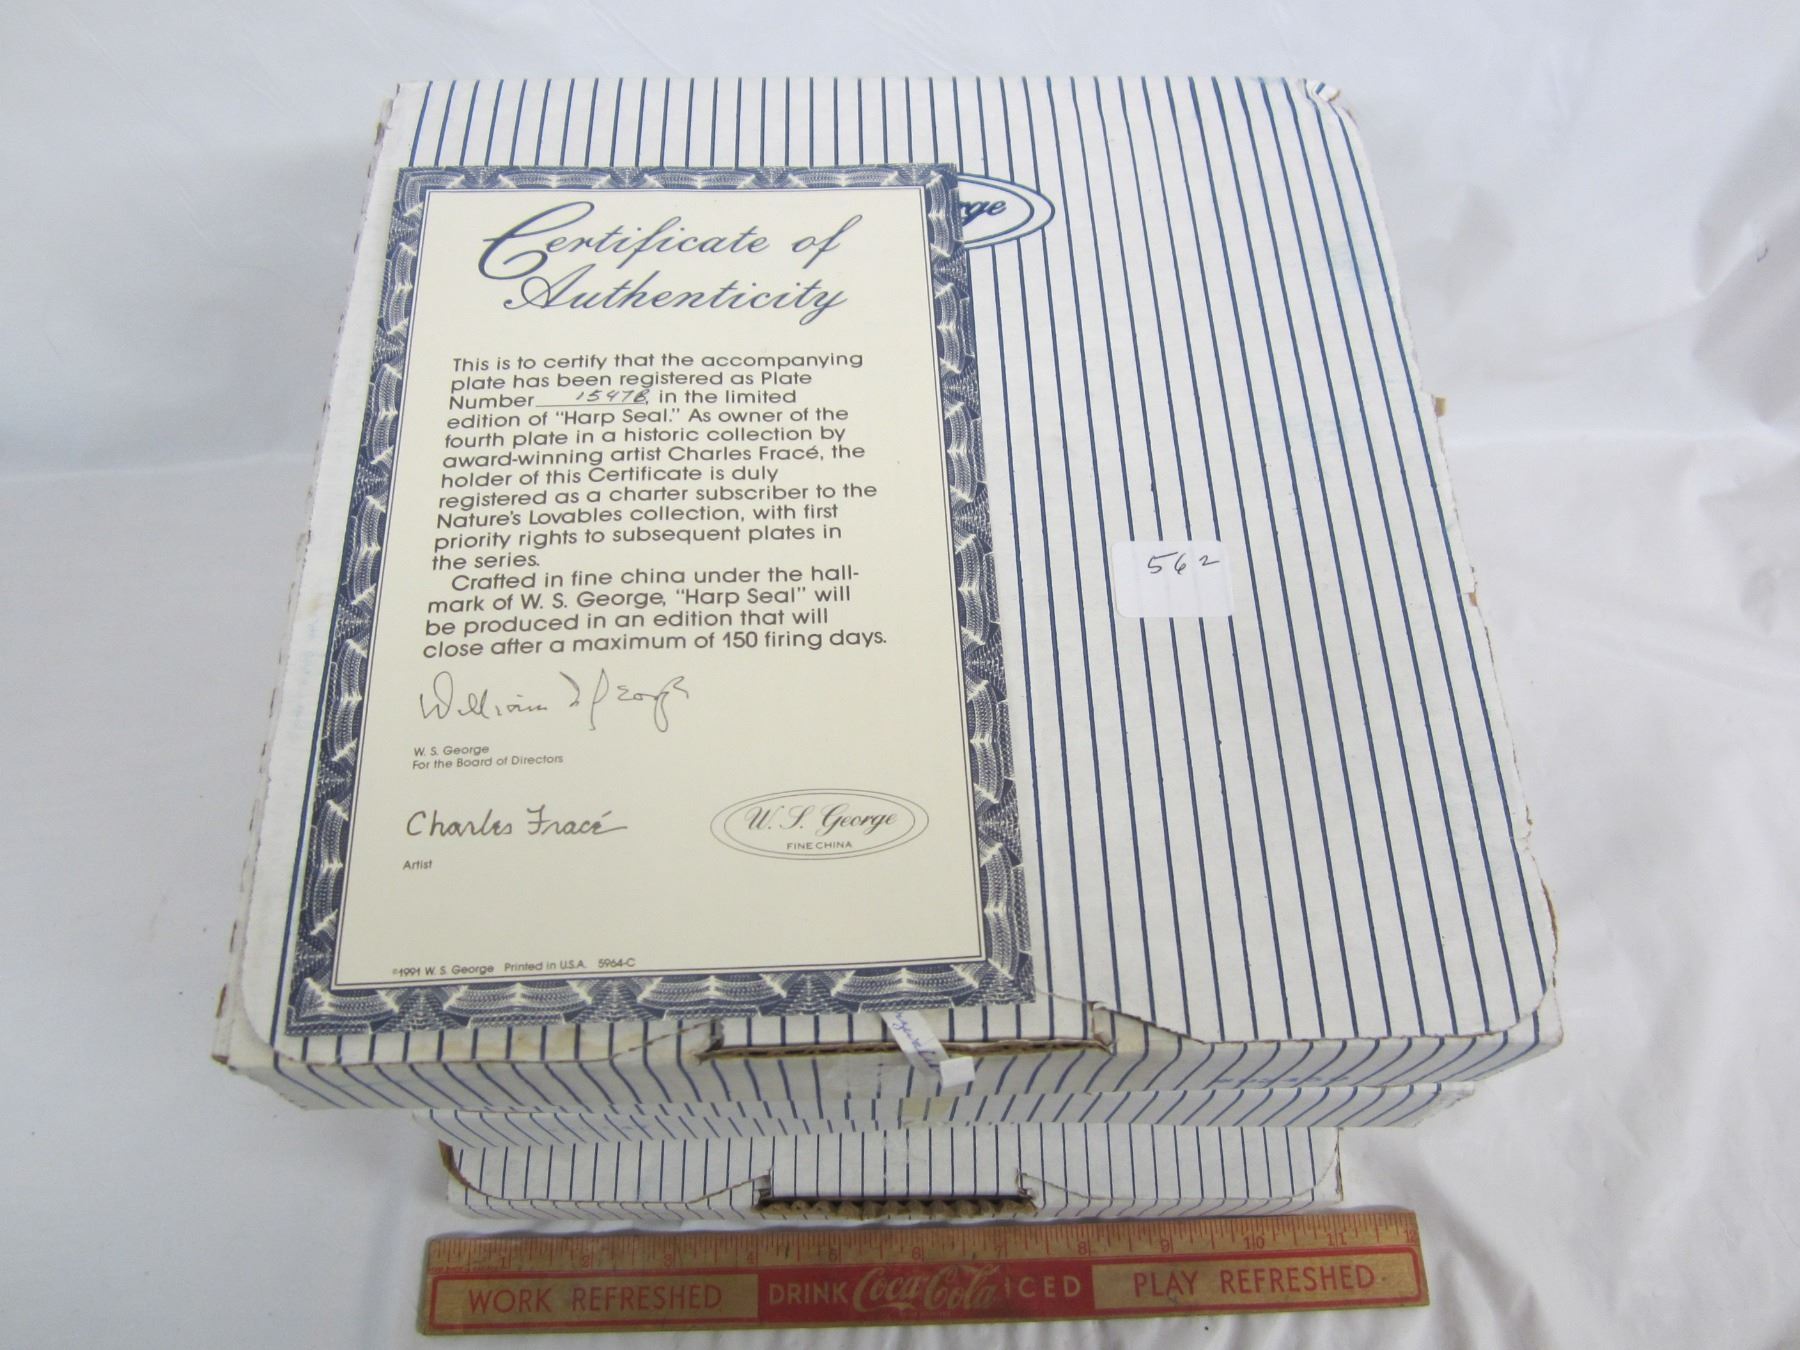 Certificate of
Authenticity
This is to certify that the accompanying
plate has been registered as Plate
Number 1547B, in the limited
edition of "Harp Seal." As owner of the
fourth plate in a historic collection by
award-winning artist Charles Fracé, the
holder of this Certificate is duly
registered as a charter subscriber to the
Nature's Lovables collection, with first
priority rights to subsequent plates in
the series.
Crafted in fine china under the hall-
mark of W. S. George, "Harp Seal" will
be produced in an edition that will
close after a maximum of 150 firing days.
William S George
W. S. George
For the Board of Directors
Charles Fracé
Artist
W. S. George
FINE CHINA
©1991 W. S. George Printed in U.S.A. 5964-C
rge
562
1 2 3 4 5 6 7 8 9 10 11 12
WORK REFRESHED DRINK Coca-Cola ICED PLAY REFRESHED